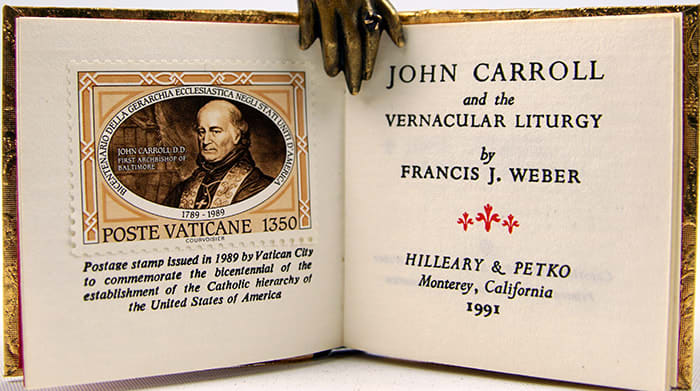 BICENTENARIO DELLA GERARCHIA ECCLESIASTICA NEGLI STATI UNITI D'AMERICA
JOHN CARROLL D.D.
FIRST ARCHBISHOP OF
BALTIMORE
1789 - 1989
POSTE VATICANE 1350
COURVOISIER
Postage stamp issued in 1989 by Vatican City
to commemorate the bicentennial of the
establishment of the Catholic hierarchy of
the United States of America
JOHN CARROLL
and the
VERNACULAR LITURGY
by
FRANCIS J. WEBER
HILLEARY & PETKO
Monterey, California
1991